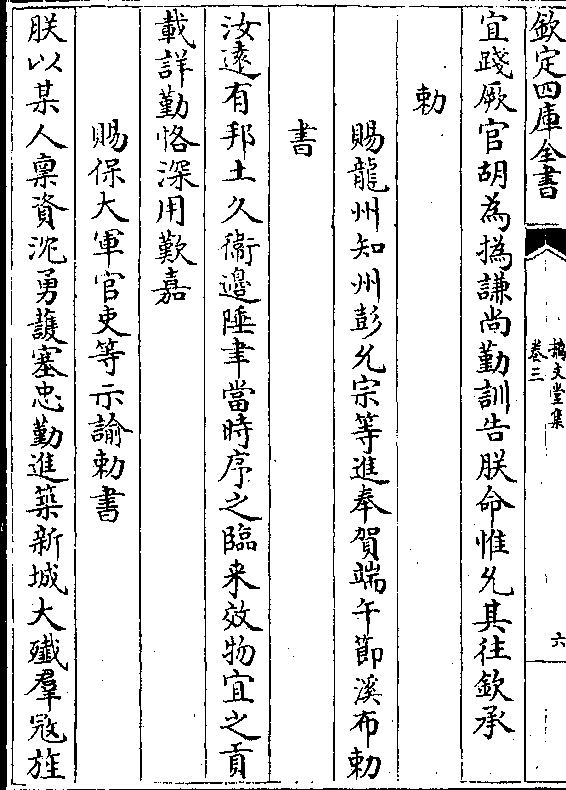 欽定四庫全書
摛文堂集
卷三
六
宜踐厥官胡為撝謙尚勤訓告朕命惟允其往欽承
勅
賜龍州知州彭允宗等進奉賀端午節溪布勅
書
汝逺有邦土久衛邊陲聿當時序之臨来效物宜之貢
載詳勤恪深用歎嘉
賜保大軍官吏等示諭勅書
朕以某人禀資沈勇䕶塞忠勤進築新城大殱羣寇旌